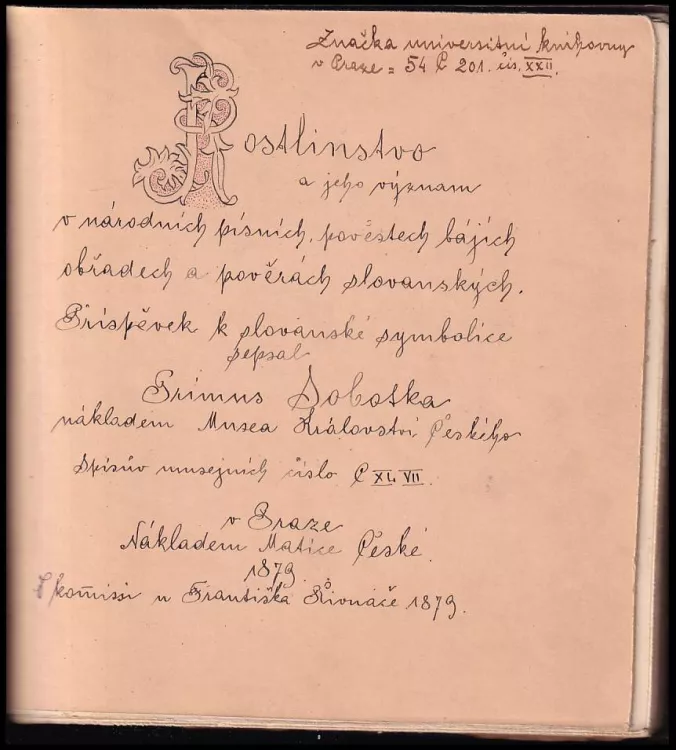 Značka universitní knihovny
v Praze = 54 C 201. čís. XXII.
Rostlinstvo
a jeho význam
v národních písních, pověstech bájích
obřadech a pověrách slovanských.
Příspěvek k slovanské symbolice
sepsal
Primus Sobotka
nákladem Musea Království Českého
Spisův musejních číslo CXLVII.
v Praze
Nákladem Matice České.
1879.
V komissi u Františka Řivnáče 1879.